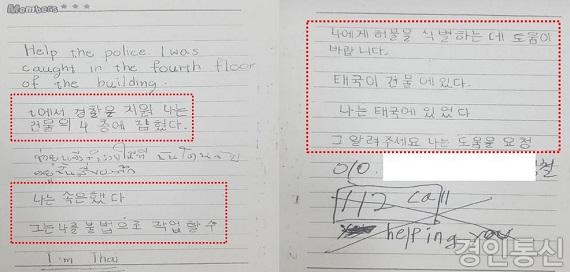 Members ***
Help the police. I was
caught in the fourth floor
of the building.
t에서 경찰을 지원 나는
건물의 4 층에 잡혔다.
나는 속은했다
그는 나를 불법으로 작업할 수
I'm Thai
나에게 허물을 식별하는 데 도움이
바랍니다.
태국이 건물에있다.
나는 태국에 있었다
그 알려주세요 나는 도움을 요청
010.
경찰
112 call
helping you
경인통신